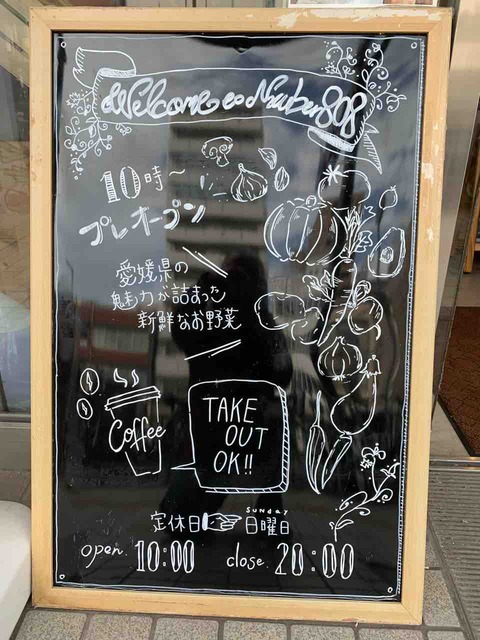 Welcome to Number808
10時~
プレオープン
愛媛県の
魅力が詰まった
新鮮なお野菜
Coffee
TAKE
OUT
OK!!
SUNDAY
定休日 日曜日
open. 10:00 close. 20:00